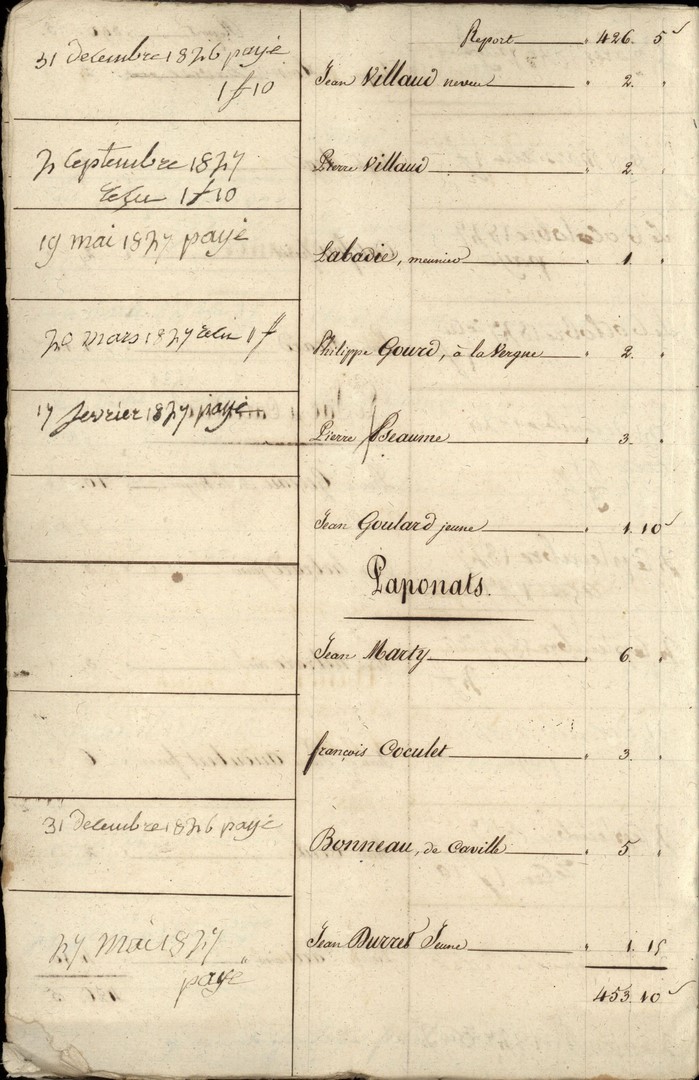 Report 426. 5
31 decembre 1826 payé
1 f 10
Jean Villaud neveu " 2. "
2 Septembre 1827
Reçu 1 f 10
Pierre Villaud " 2. "
19 mai 1827 payé
Labadie, meunier " 1. "
20 mars 1827 Reçu 1 f
Philippe Gourd, à la Vergne " 2. "
17 fevrier 1827 payé
Pierre Pseaume " 3. "
Jean Goulard jeune " 1. 10
Paponats.
Jean Marty " 6. "
françois Coculet " 3. "
31 decembre 1826 payé
Bonneau, de Caville " 5. "
27 Mai 1827
payé
Jean Durret Jeune " 1. 15
453. 10